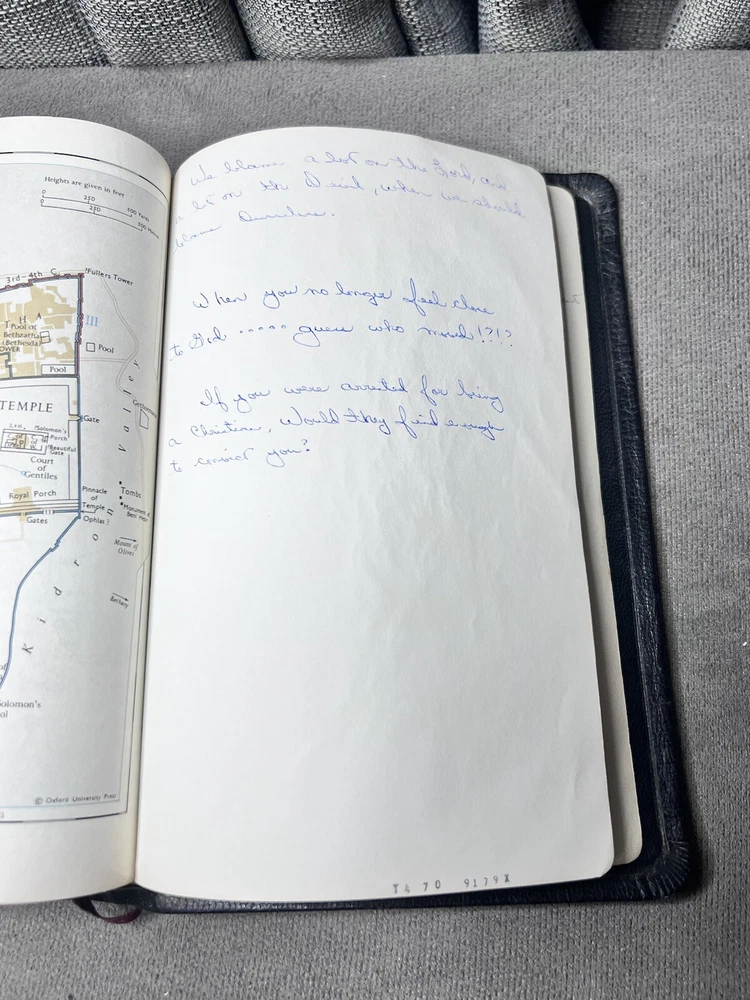 Heights are given in feet
0 250 500 Yards
0 250 500 Metres
3rd-4th C.
Fullers Tower
T H A
Pool of
Bethzatha
(Bethesda)
OWER
III
Pool
Pool
TEMPLE
Gate
Solomon's
Porch
Beautiful
Gate
Court
of
Gentiles
Royal Porch
Gates
Pinnacle
of
Temple
Ophlas?
Tombs
Mount of
Olives
Bethany
Kidron
Solomon's
ol
© Oxford University Press
We blame a lot on the Lord, and
a lot on the Devil, when we should
blame ourselves.
When you no longer feel close
to God ..... guess who moved!?!?
If you were arrested for being
a Christian, Would they find enough
to convict you?
T4 70 9179X